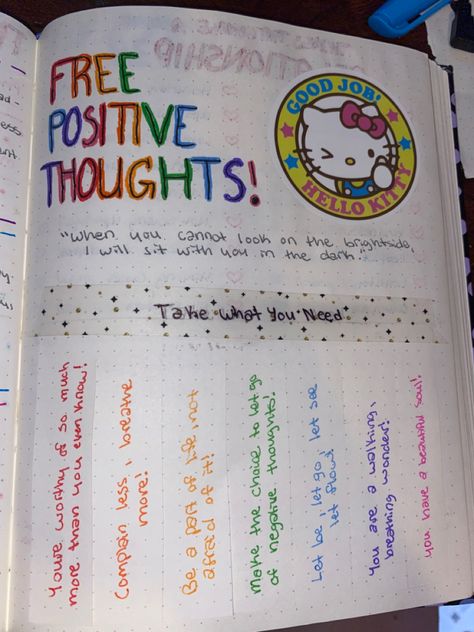 FREE
POSITIVE
THOUGHTS!
GOOD JOB!
HELLO KITTY
"When you cannot look on the brightside,
I will sit with you in the dark."
Take What You Need
You're worthy of so much
more than you even know!
Complan less, breathe
more!
Be a part of life, not
afraid of it!
Make the choice to let go
of negative thoughts!
Let be, let go, let see
let flow!
You are a walking,
breathing wonder!
You have a beautiful soul!